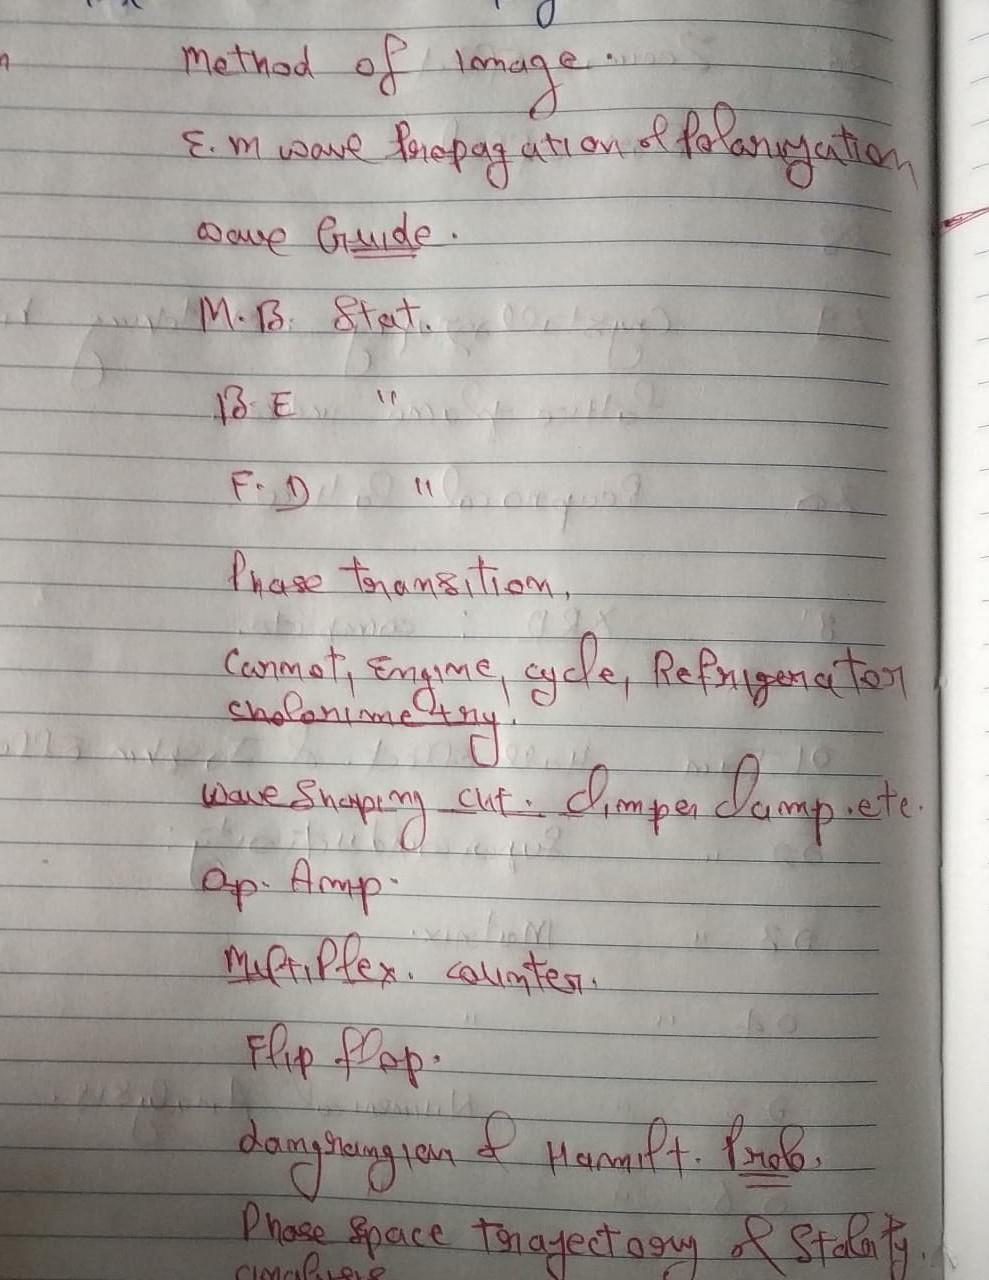 Method of Image.
E.m wave Propagation & Polarization
wave Guide.
M.B. Stat.
B.E "
F.D "
Phase transition,
Carnot, Engine, cycle, Refrigerator
cholorimetry.
wave Shapping ckt. Climper Clamp.etc.
Op. Amp.
Multiplex. counter.
Flip flop.
Langrangian & Hamilt. Prob.
Phase space trajectory &